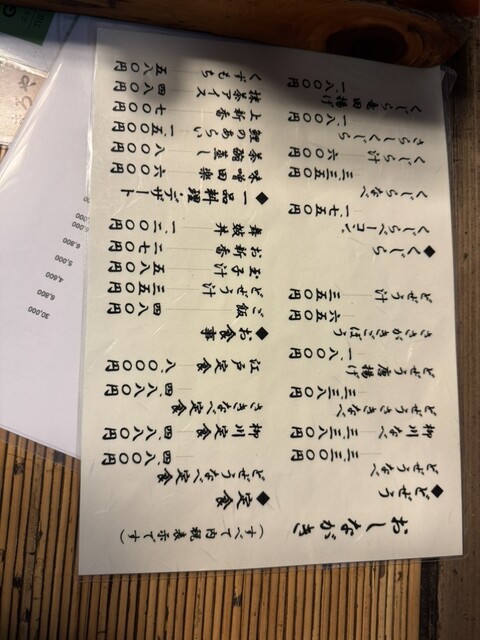 おしながき
(すべて内税表示です)
◆どぜう
どぜうなべ 三、三〇〇円
柳川なべ 三、三八〇円
どぜうさきなべ 三、三八〇円
どぜう唐揚げ 一、八〇〇円
ささがきごぼう 六五〇円
どぜう汁 三五〇円
◆くじら
くじらベーコン 一、七五〇円
くじらなべ 三、三五〇円
くじら汁 六〇〇円
さらしくじら 一、八〇〇円
くじら竜田揚げ 一、八〇〇円
◆定食
どぜうなべ定食 四、八〇〇円
柳川定食 四、八八〇円
さきなべ定食 四、八八〇円
江戸定食 八、〇〇〇円
◆お食事
ご飯 四八〇円
どぜう汁 三五〇円
玉子汁 五八〇円
お新香 二七〇円
舞鼓丼 一、二〇〇円
◆一品料理・デザート
味噌田楽 六〇〇円
茶碗蒸し 八〇〇円
鯉のあらい 一、五〇〇円
上新香 七〇〇円
抹茶アイス 四八〇円
くずもち 五八〇円
30,000
6,800
4,600
5,000
6,800